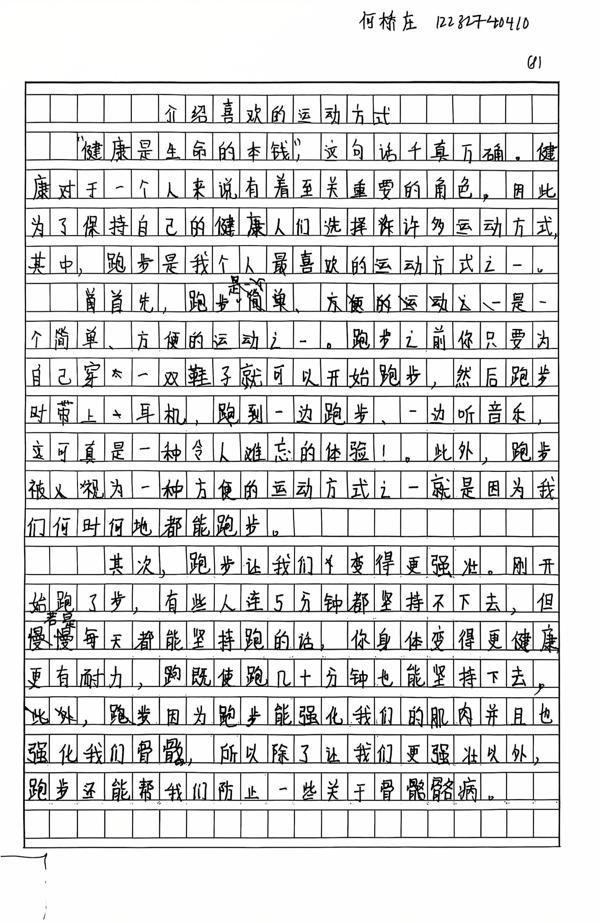 何桥庄 12232740410
(1)
介绍喜欢的运动方式
“健康是生命的本钱”，这句话千真万确。健
康对于一个人来说有着至关重要的角色。因此
为了保持自己的健康人们选择许多运动方式，
其中，跑步是我个人最喜欢的运动方式之一。
首先，跑步是一个简单、方便的运动之一是一
个简单、方便的运动之一。跑步之前你只要为
自己穿一双鞋子就可以开始跑步，然后跑步
时带上耳机，跑到一边跑步、一边听音乐，
这可真是一种令人难忘的体验！。此外，跑步
被视为一种方便的运动方式之一就是因为我
们何时何地都能跑步。
其次，跑步让我们变得更强壮。刚开
始跑了步，有些人连5分钟都坚持不下去，但
若是
慢慢每天都能坚持跑的话，你身体变得更健康
更有耐力，跑既使跑几十分钟也能坚持下去。
此外，跑步因为跑步能强化我们的肌肉并且也
强化我们骨骼，所以除了让我们更强壮以外，
跑步还能帮我们防止一些关于骨骼骼病。